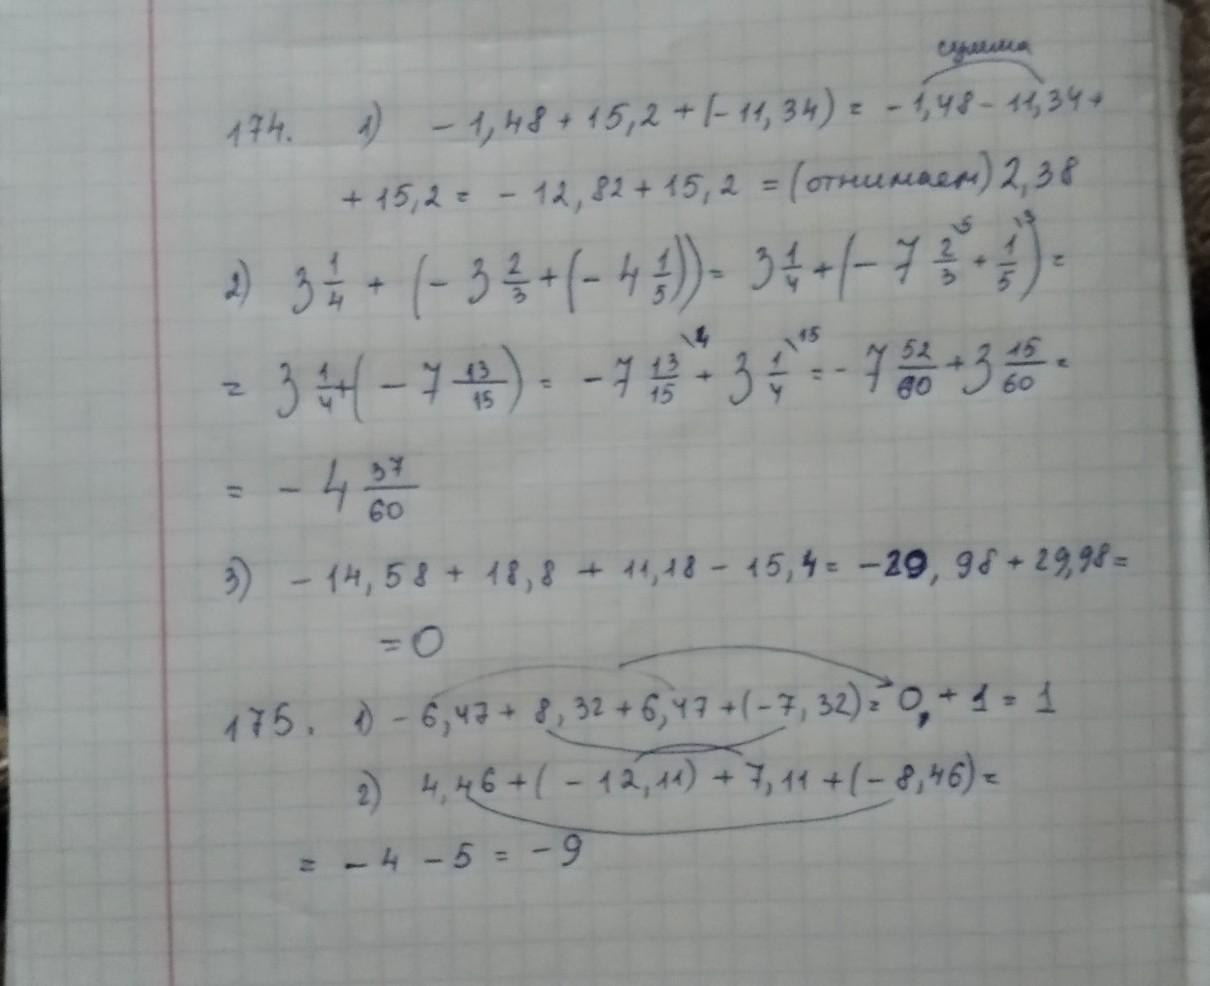 сумма
174. 1) - 1,48 + 15,2 + (- 11,34) = - 1,48 - 11,34 +
+ 15,2 = - 12,82 + 15,2 = (отнимаем) 2,38
2) 3 1/4 + (- 3 2/3 + (- 4 1/5)) = 3 1/4 + (- 7 2/3 \5 + 1/5 \3) =
= 3 1/4 + (- 7 13/15) = - 7 13/15 \4 + 3 1/4 \15 = - 7 52/60 + 3 15/60 =
= - 4 37/60
3) - 14,58 + 18,8 + 11,18 - 15,4 = - 29,98 + 29,98 =
= 0
175. 1) - 6,47 + 8,32 + 6,47 + (- 7,32) = 0 + 1 = 1
2) 4,46 + (- 12,11) + 7,11 + (- 8,46) =
= - 4 - 5 = - 9